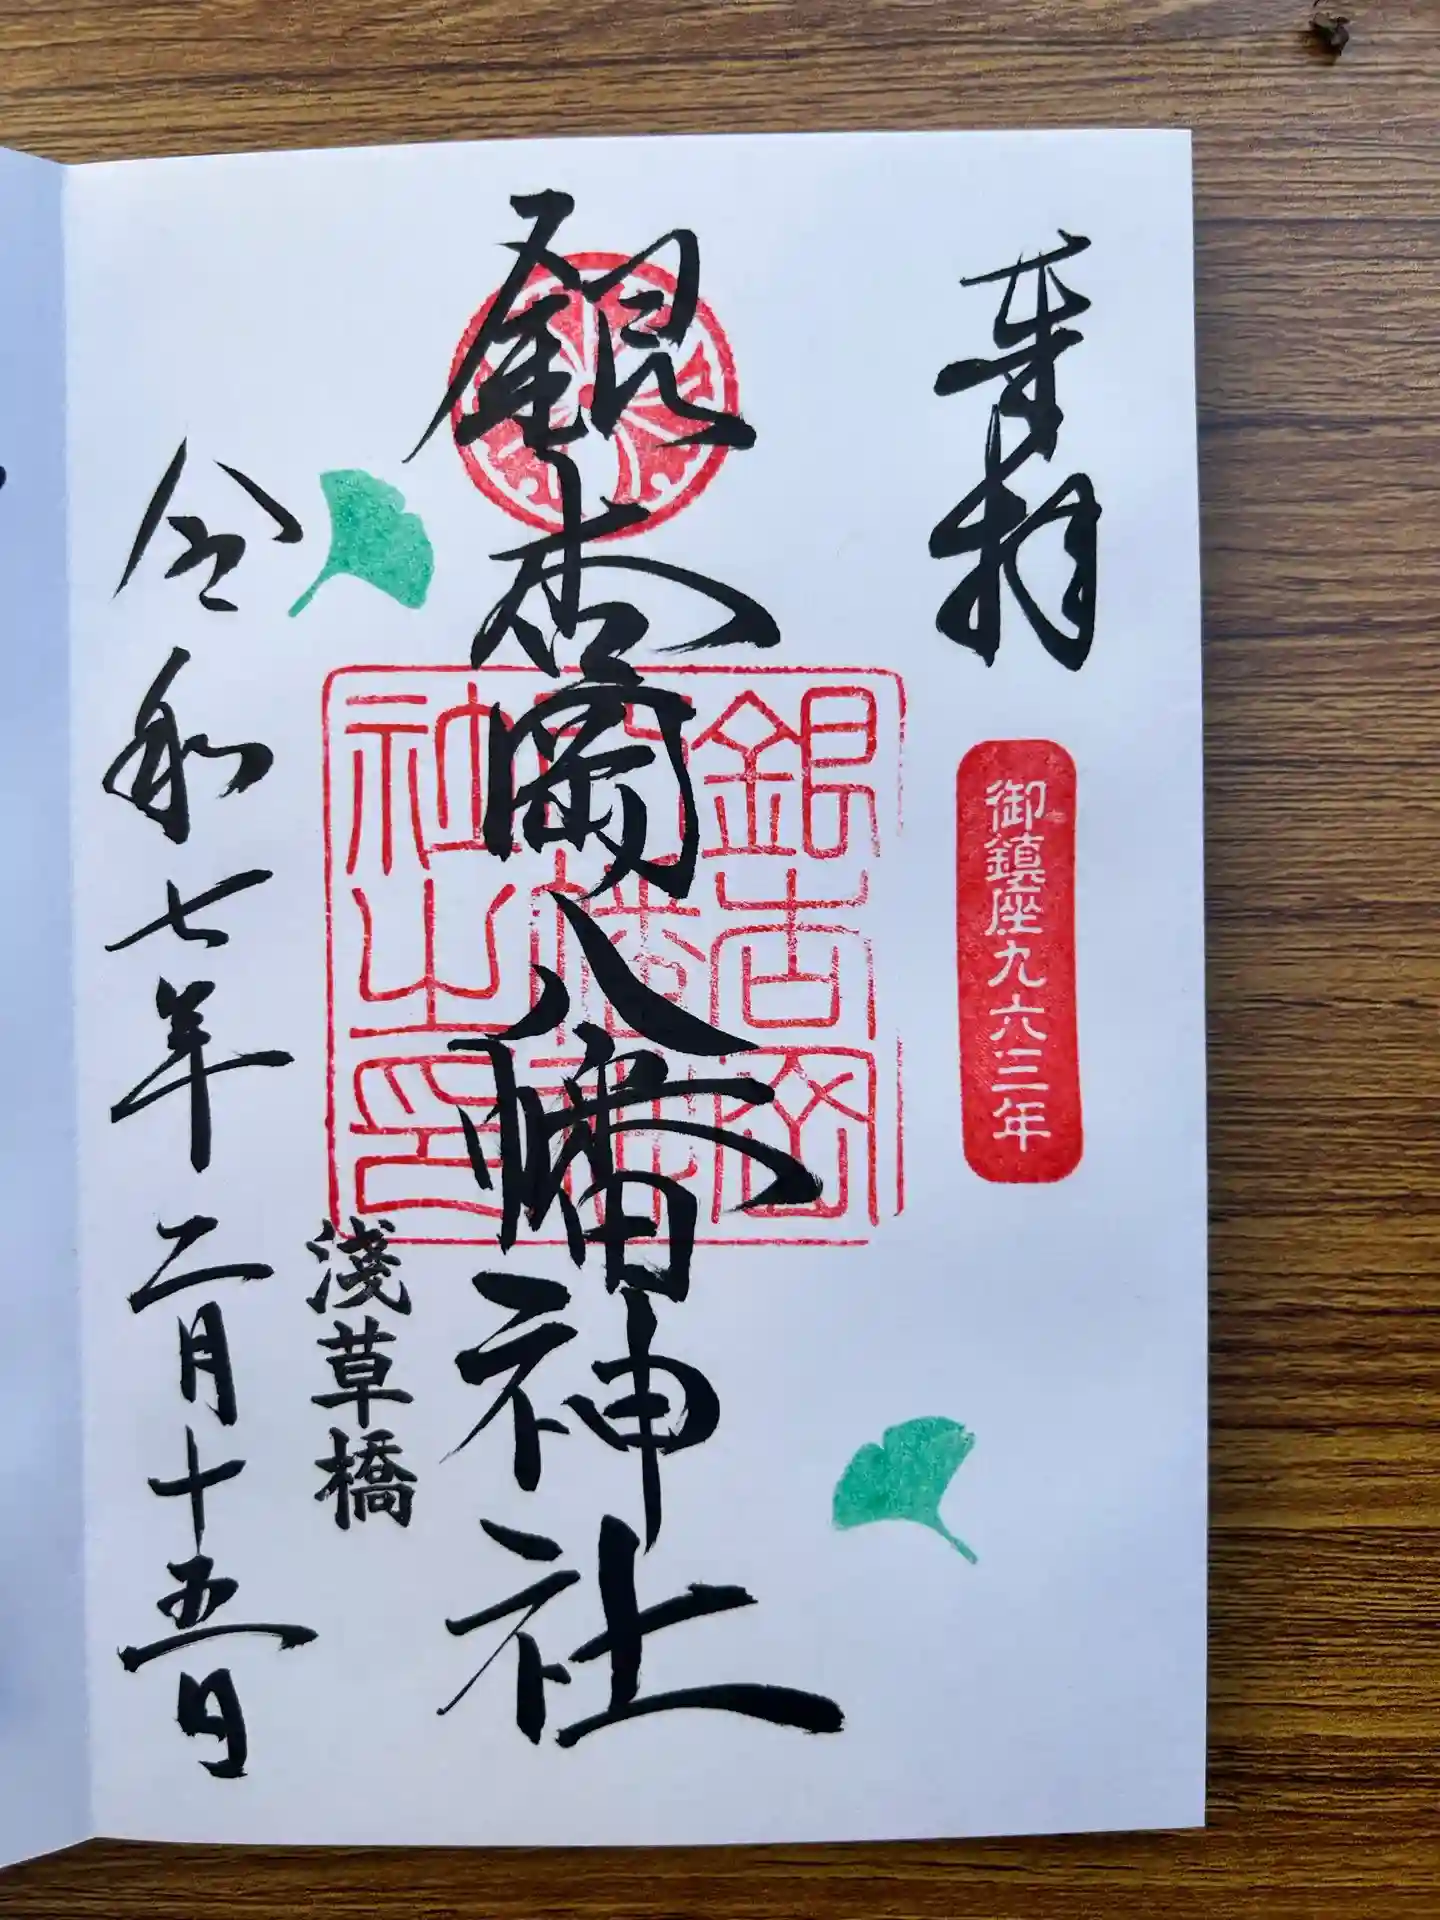 奉拝
御鎮座九六三年
銀杏岡八幡神社
銀杏岡八幡神社之印
浅草橋
令和七年二月十五日